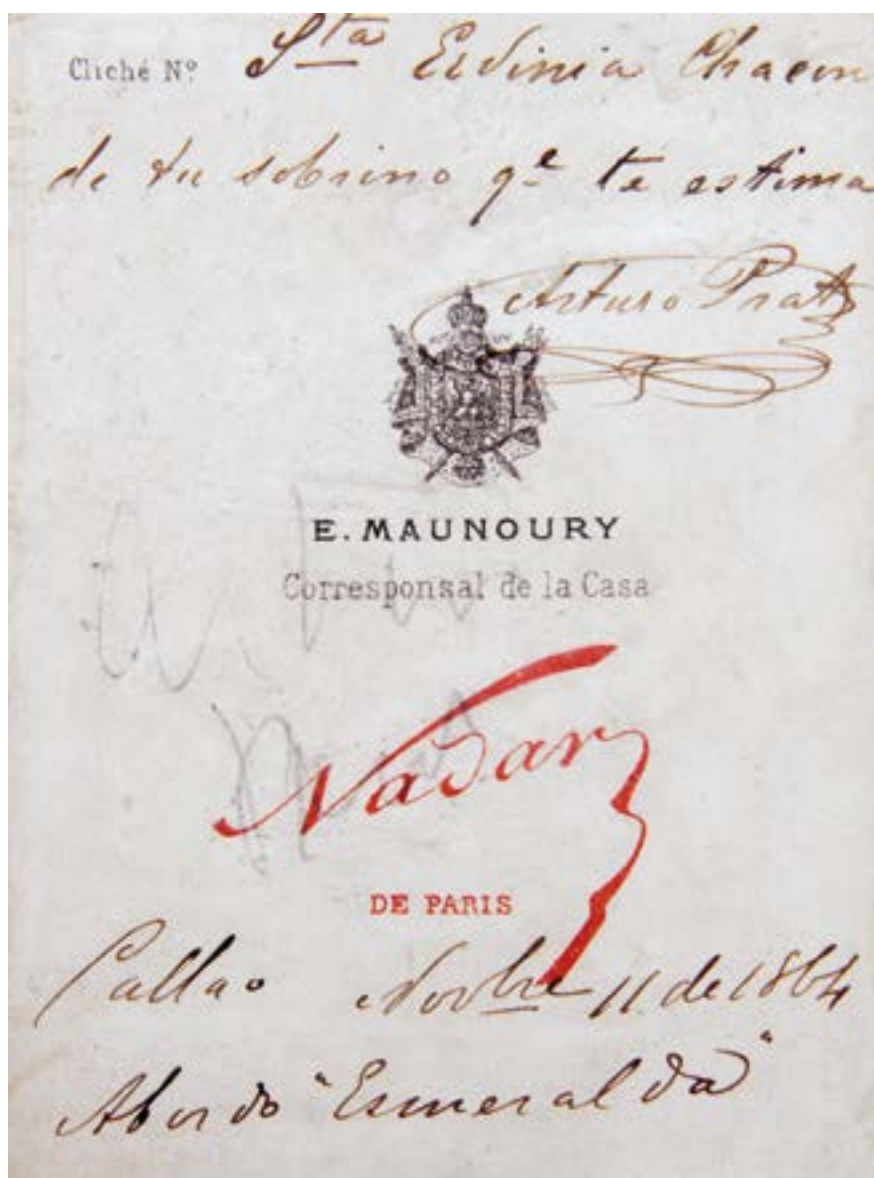 Cliché Nº Sta Erdinia Chacon
de tu sobrino qe te estima
Arturo Prat
E. MAUNOURY
Corresponsal de la Casa
Nadar
DE PARIS
Callao Novbre 11 de 1864
Abordo "Esmeralda"